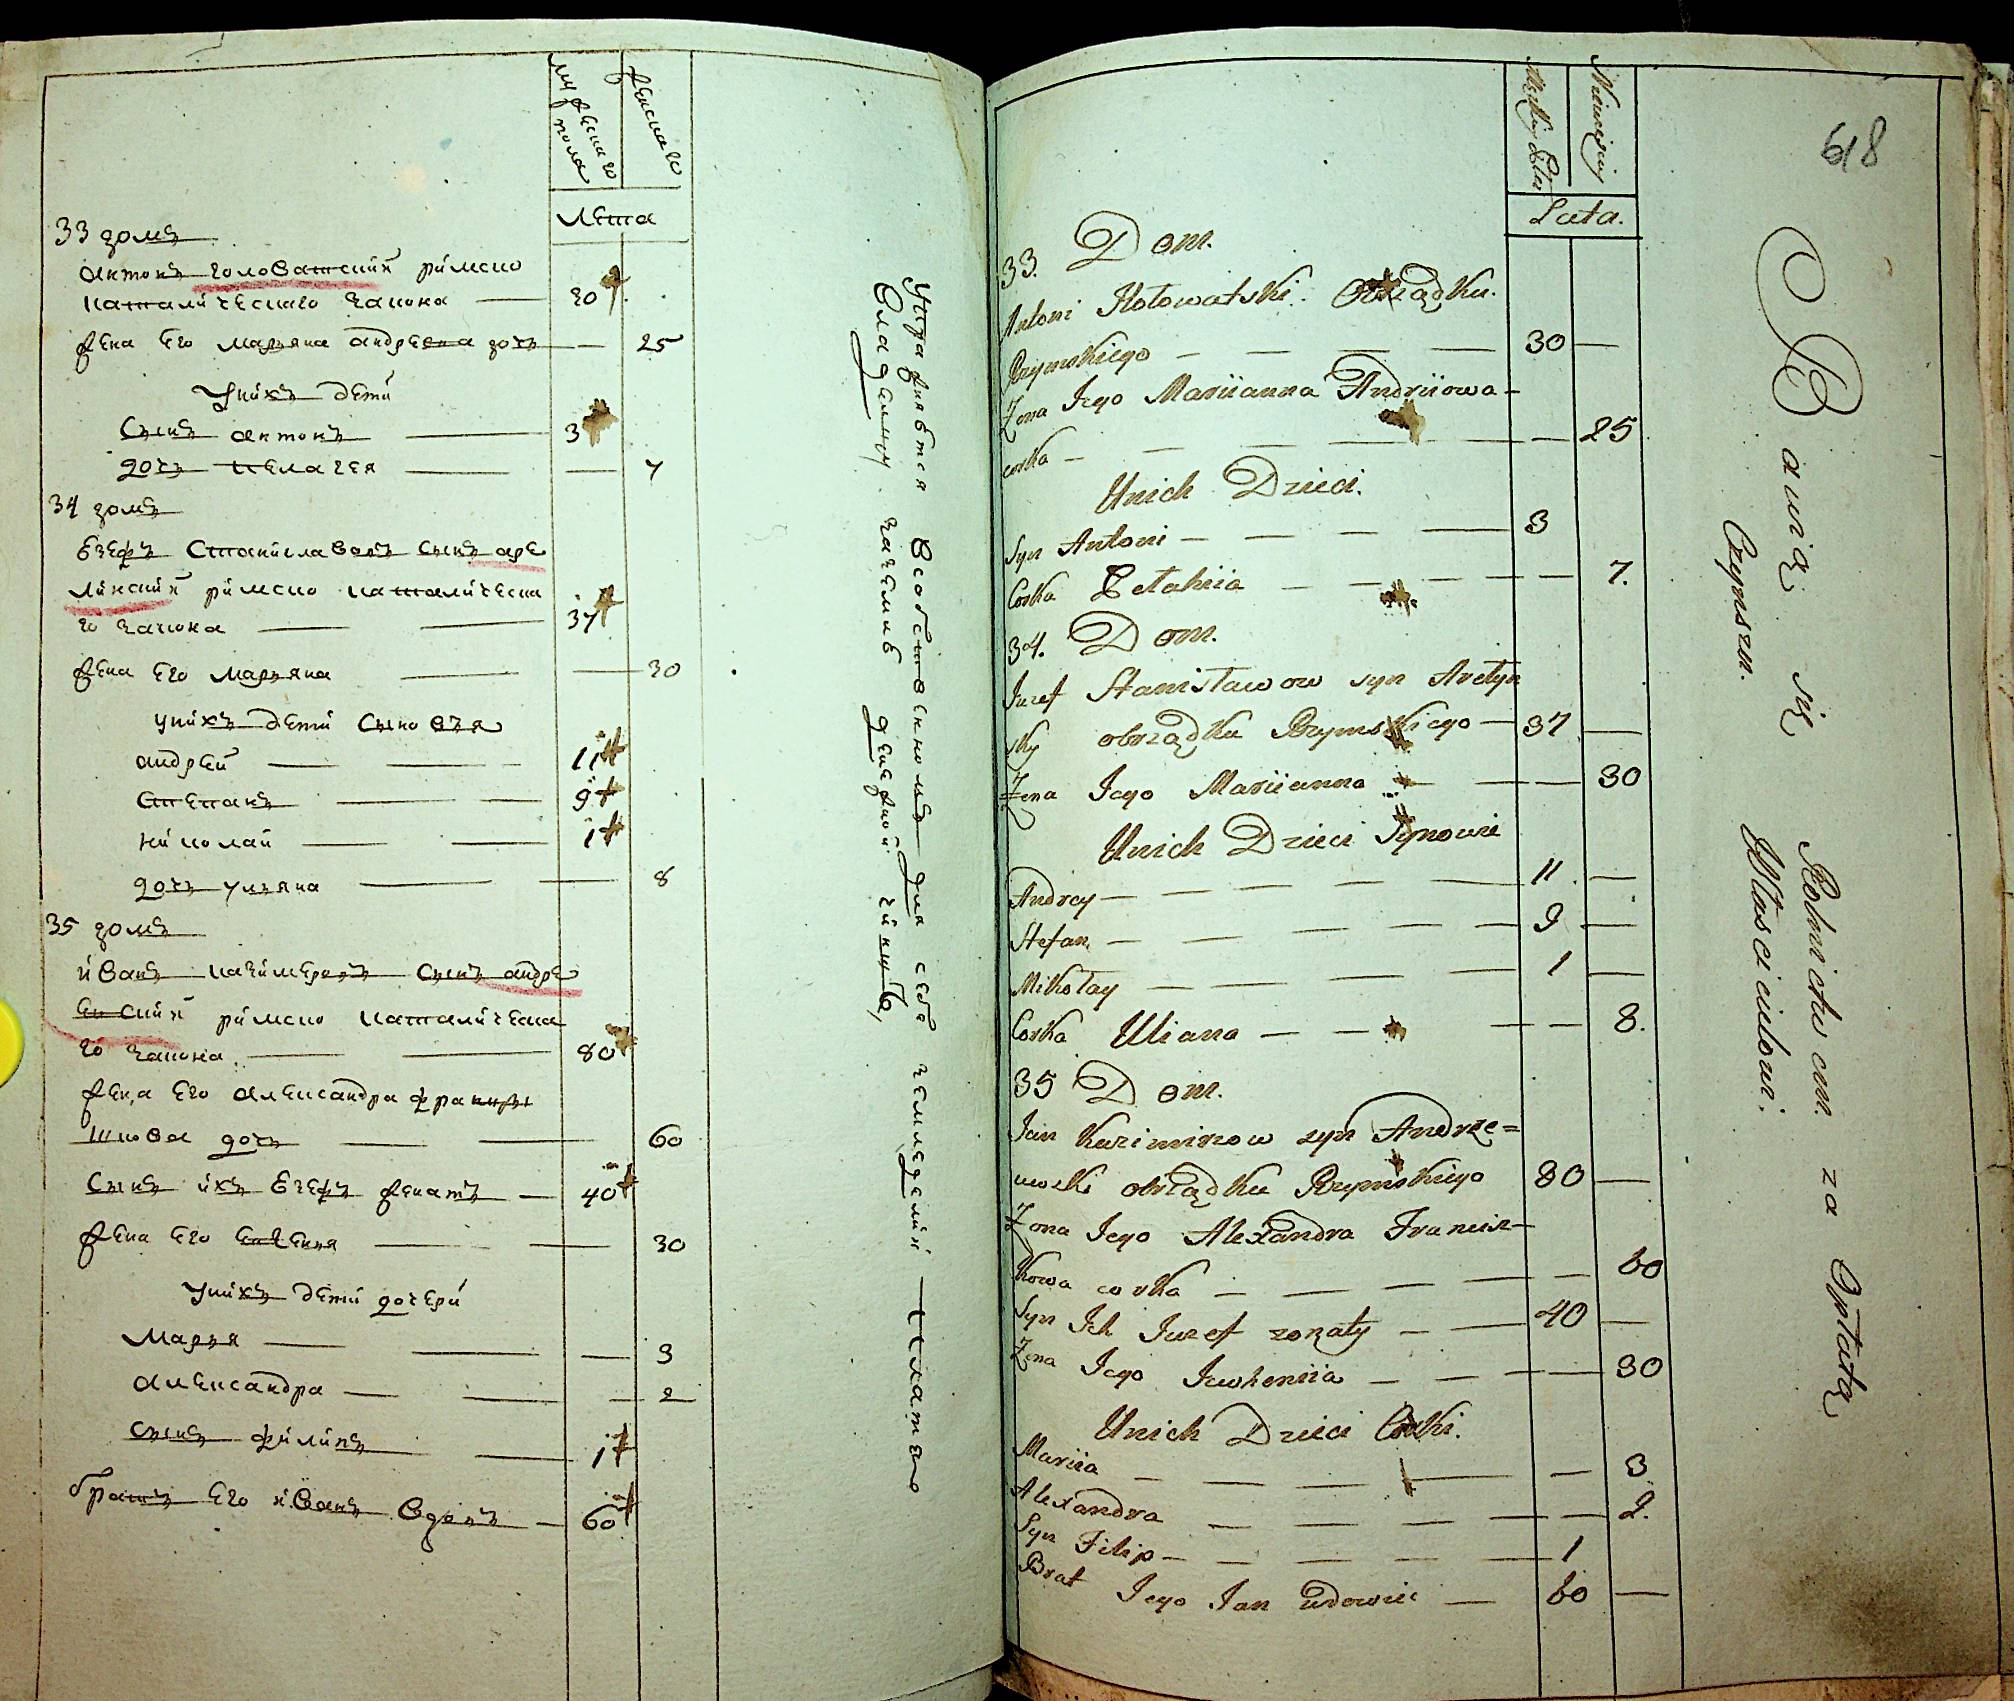 мужеска го
пола
женска го
лета
33 домъ
антонъ головатский римско
католическаго закона — 30
жена его марьяна андреева дочь — 25
у нихъ дети
сынъ антонъ — 3
дочь пелагея — 7
34 домъ
езефъ станиславовъ сынъ аре
линский римско католическа
го закона — 37
жена его марьяна — 30
у нихъ дети сыновья
андрей — 11
степанъ — 9
николай — 1
дочь ульяна — 8
35 домъ
иванъ казимеровъ сынъ андре
евский римско католическа
го закона — 80
жена его александра францы
шкова дочь — 60
сынъ ихъ езефъ женатъ — 40
жена его евгения — 30
у нихъ дети дочери
марья — 3
александра — 2
сынъ филипъ — 1
братъ его иванъ вдовъ — 60
упражняются в собственномъ для себя земледелии платя
владелцу за землю денежной чиншъ,
618
Lata.
33. Dom.
Antoni Hołowatski Obrządku
Rzymskiego — 30 —
Żona Jego Mariianna Andriiowa
corka — 25
Unich Dzieci.
Syn Antoni — 3
Corka Pelahiia — 7.
34. Dom.
Juzef Stanisławow syn Arelyn
sky obrządku Rzymskiego — 37 —
Żona Jego Mariianna — 30
Unich Dzieci Synowie
Andrey — 11 —
Stefan — 9 —
Mikołay — 1 —
Corka Uliana — 8.
35 Dom.
Jan Kazimirzow syn Andrze=
iewski obrządku Rzymskiego 80 —
Żona Jego Alexandra Francisz-
kowa corka — 60
Syn Ich Juzef zonaty — 40 —
Żona Jego Jewheniia — 30
Unich Dzieci Corki.
Mariia — 3
Alexandra — 2.
Syn Filip — 1
Brat Jego Jan wdowiec — 60 —
Bawią się Rolnictwem za Opłatą
Czynszu. Włascicielowi.